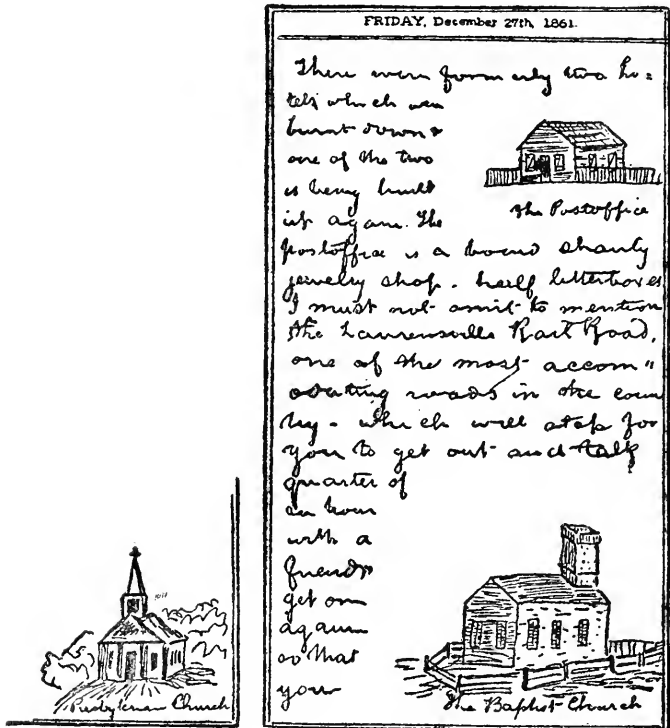 FRIDAY, December 27th, 1861.
There were formerly two ho=
tels which were
burnt down &
one of the two
is being built
up again. The
The Postoffice
postoffice is a board shanty
jewelry shop - half letterboxes
I must not omit to mention
the Laurensville Rail Road,
one of the most accom"
odating roads in the coun
try - which will stop for
you to get out and talk
quarter of
an hour
with a
friend &
get on
again
so that
you
The Baptist Church
Presbyterian Church